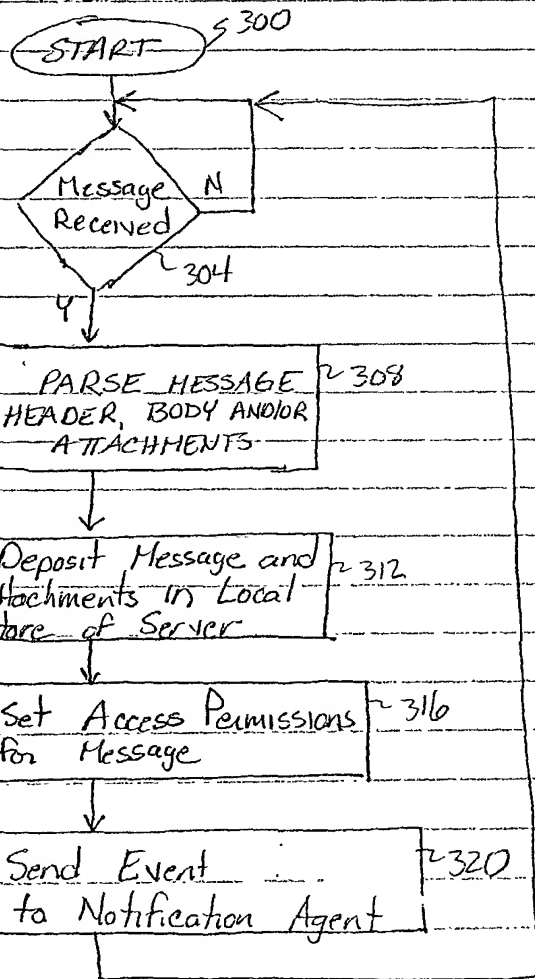 START 300
Message N
Received
304
Y
PARSE MESSAGE 308
HEADER, BODY AND/OR
ATTACHMENTS
Deposit Message and 312
tachments in Local
tore of Server
Set Access Permissions 316
for Message
Send Event 320
to Notification Agent